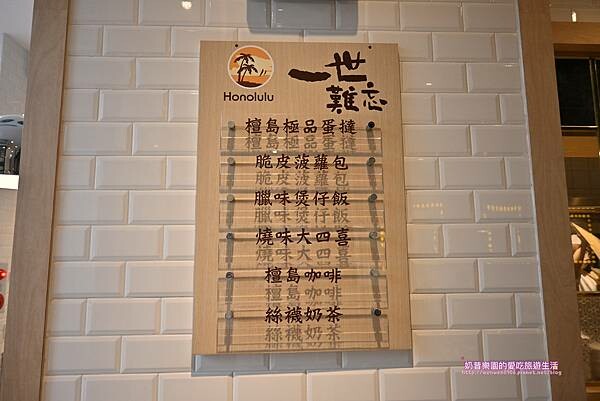 Honolulu
一世難忘
檀島極品蛋撻
脆皮菠蘿包
臘味煲仔飯
燒味大四喜
檀島咖啡
絲襪奶茶
奶昔樂園的愛吃旅遊生活